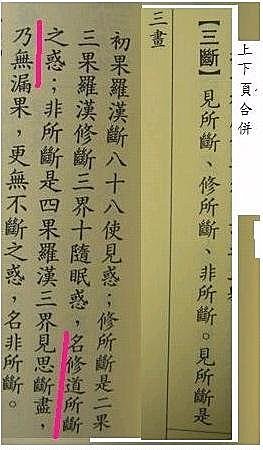 上下頁合併
【三斷】見所斷、修所斷、非所斷。見所斷是
三畫
初果羅漢斷八十八使見惑；修所斷是二果
三果羅漢修斷三界十隨眠惑，名修道所斷
之惑；非所斷是四果羅漢三界見思斷盡，
乃無漏果，更無不斷之惑，名非所斷。